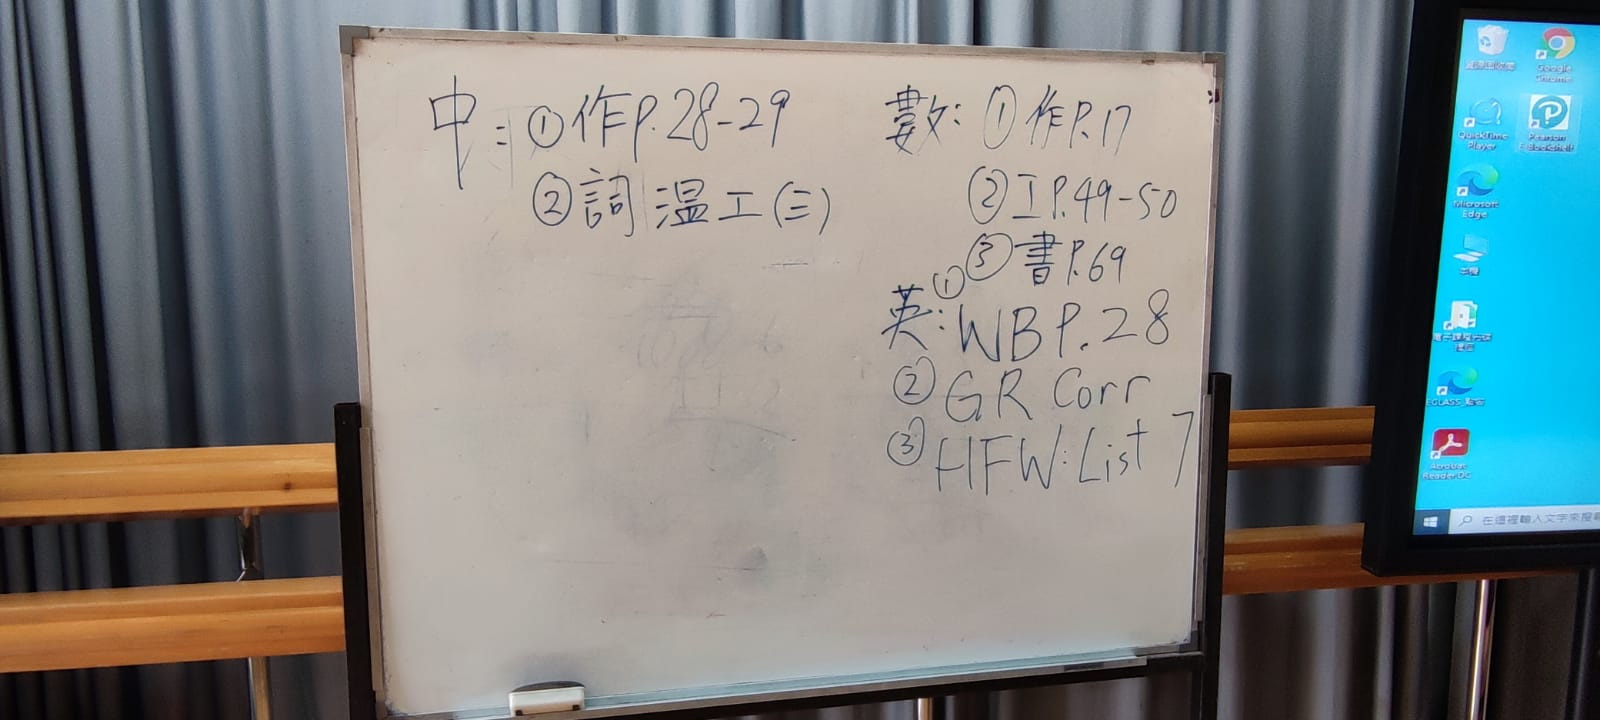 中: ①作P.28-29
②詞 温工(三)
數: ①作P.17
②工P.49-50
③書P.69
英: ①WB P.28
②GR Corr
③HFW: List 7
Google Chrome
QuickTime Player
Pearson
Microsoft Edge
本機
Acrobat Reader DC
在這裡輸入文字來搜尋